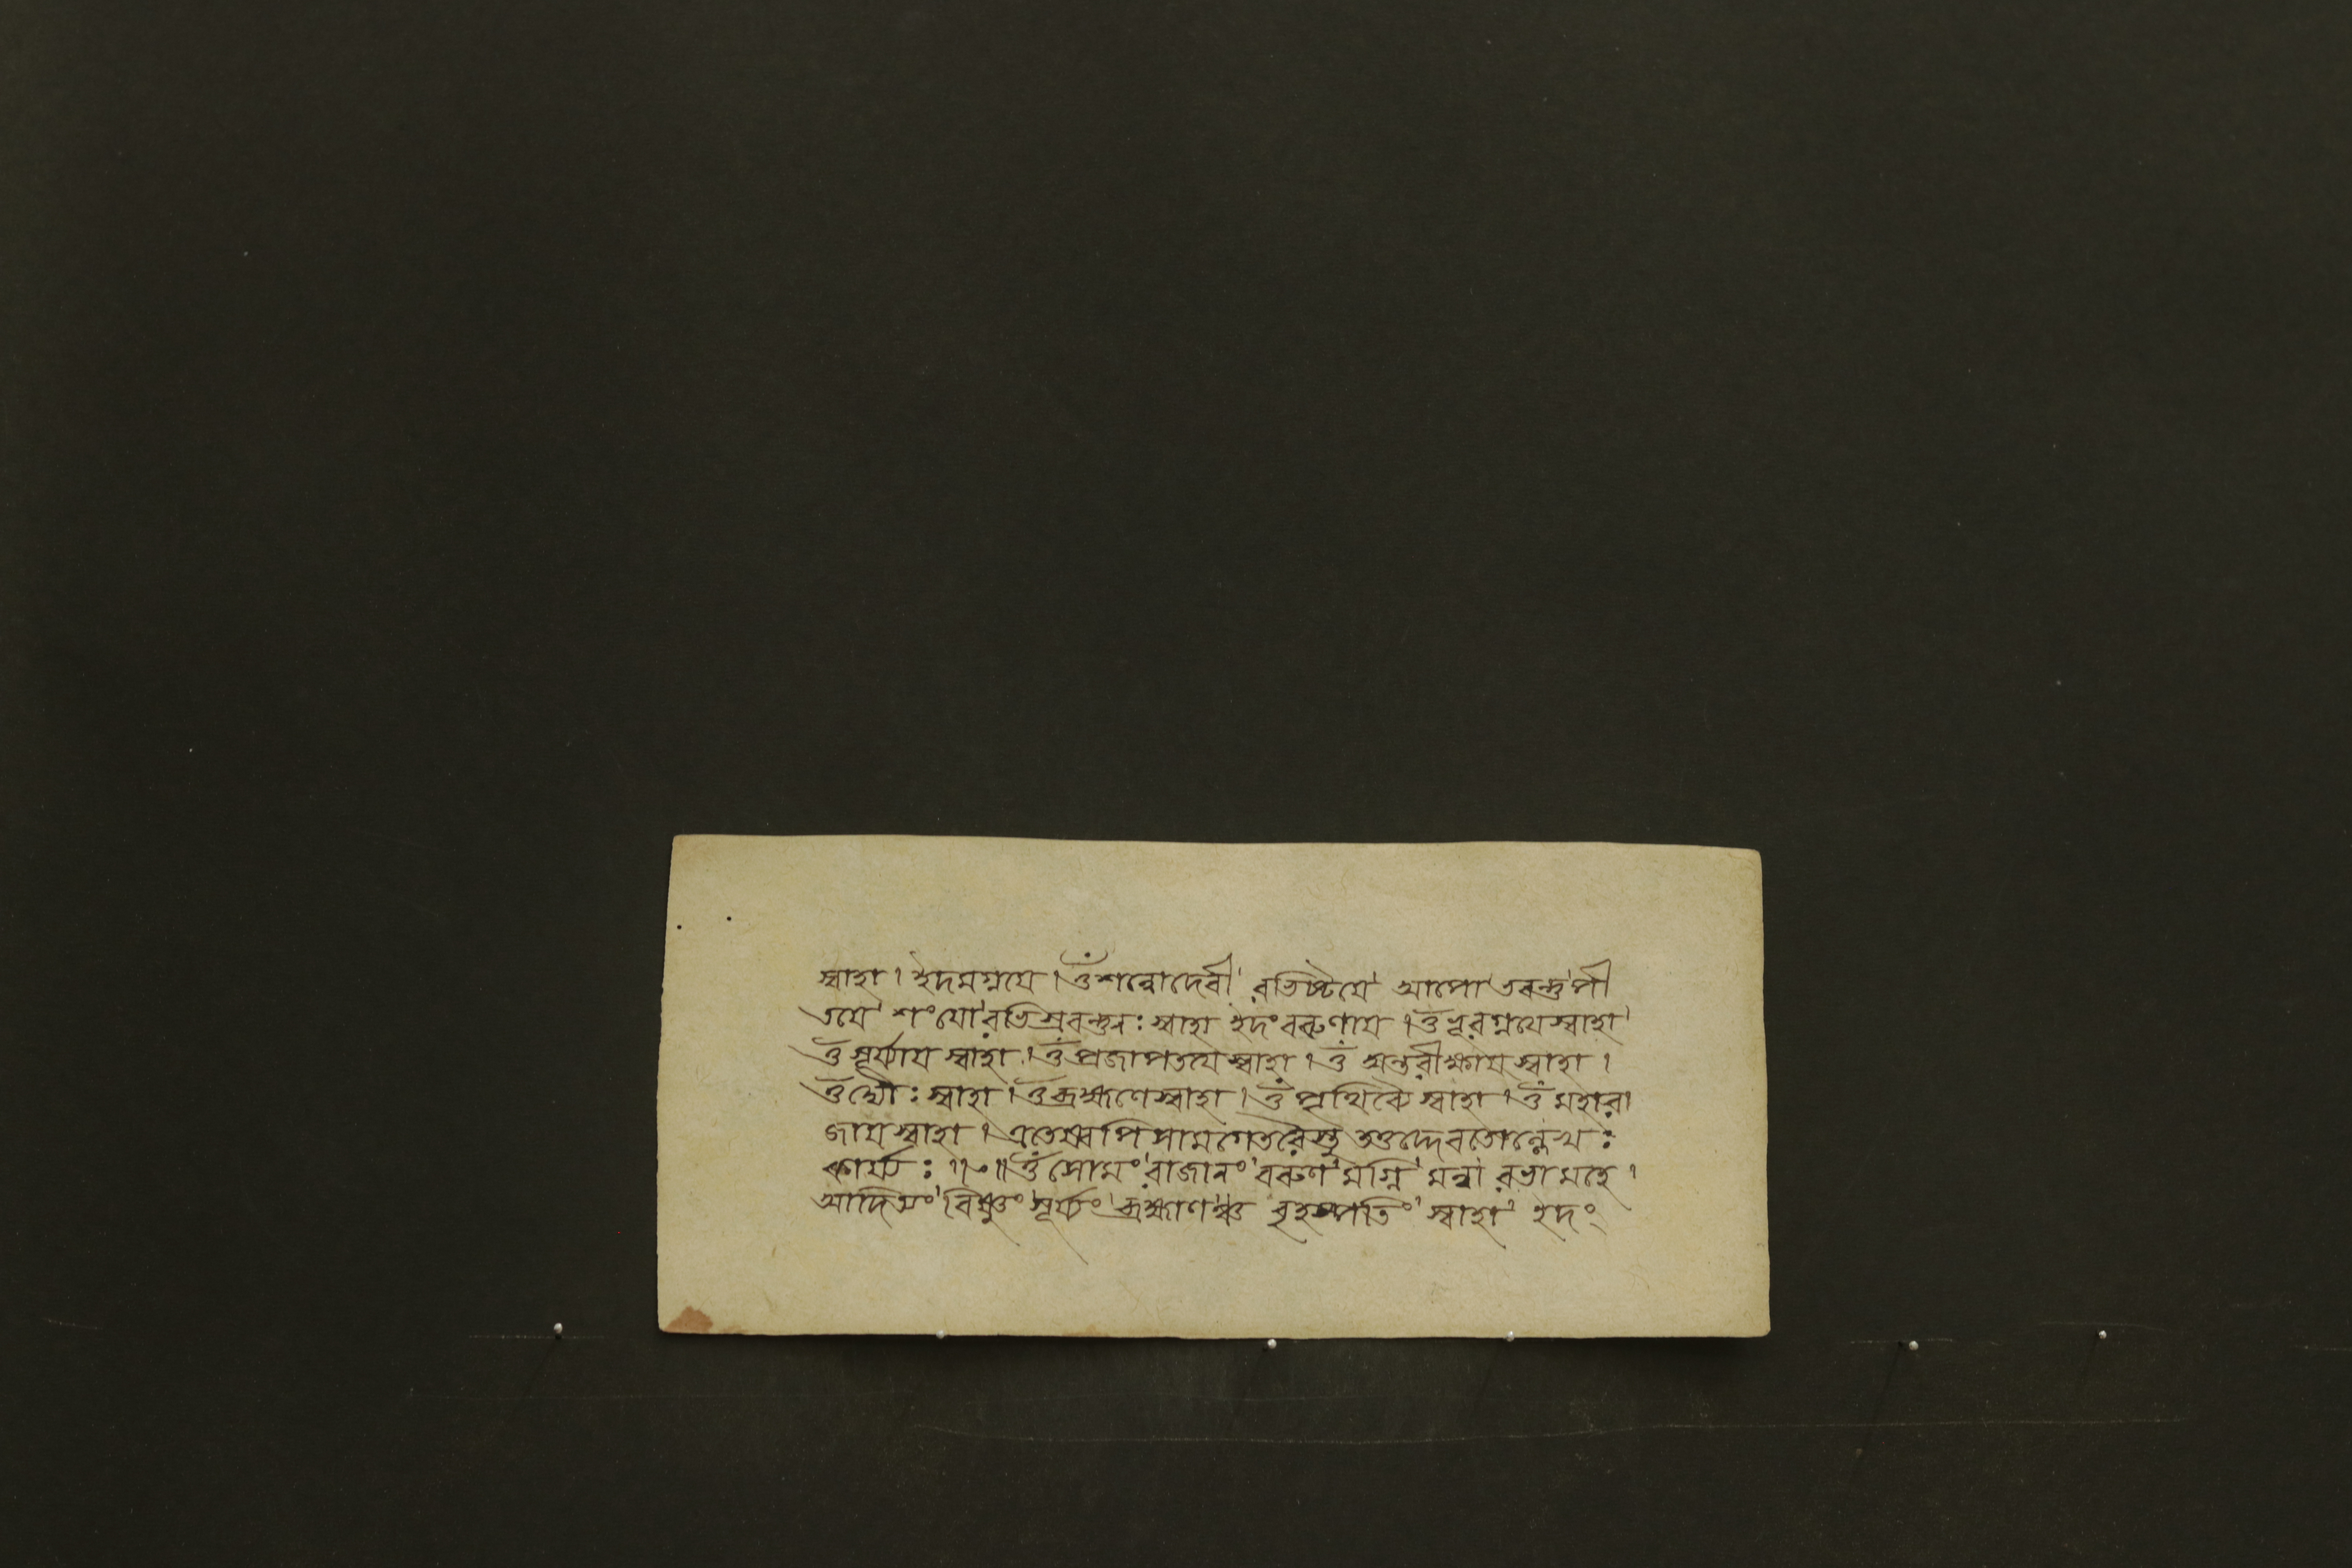 স্বাহা । ইদমগ্নয়ে । ওঁ শন্নোদেবী রভিষ্টয়ে আপো ভবন্তু পী
তয়ে শংযোরভিস্রবন্তুনঃ স্বাহা ইদং বরুণায় । ওঁ ভূরগ্নয়ে স্বাহা
ওঁ সূর্য্যায় স্বাহা । ওঁ প্রজাপতয়ে স্বাহা । ওঁ অন্তরীক্ষায় স্বাহা ।
ওঁ দ্যৌঃ স্বাহা । ওঁ ব্রহ্মণে স্বাহা । ওঁ পৃথিব্যৈ স্বাহা । ওঁ মহারা
জায় স্বাহা । এতেষ্বপি সামগেতরৈস্তু তত্তদ্দেবতোল্লেখঃ
কার্য্যঃ ॥ ওঁ সোমং রাজানং বরুণমগ্নি মন্বা রভামহে ।
আদিত্যং বিষ্ণুং সূর্য্যং ব্রহ্মাণঞ্চ বৃহস্পতিং স্বাহা ইদং